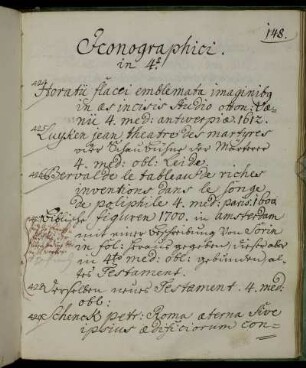 148.
Iconographici.
in 4º
424 Horatii flacci emblemata imaginibq
in æs incisis studio otton. Væ-
nii 4. med: antwerpiæ. 1612.
425 Luyken jean, theatre des martyres
oder Schau Bühne der Martrer
4. med: obl: Leide.
426 Bervalde le tableau de riches
inventions dans le songe
de poliphile 4. med: paris. 1600
figuren 1700. in amsterdam
mit einer Beschreibung von
in fol: heraus gegeben, diese aber
in 4to med: obl: gebunden, al-
tes Testament.
428 neues Testament. 4. med:
obl:
429 Schenck petr: Roma æterna sive
ipsius ædificiorum con-